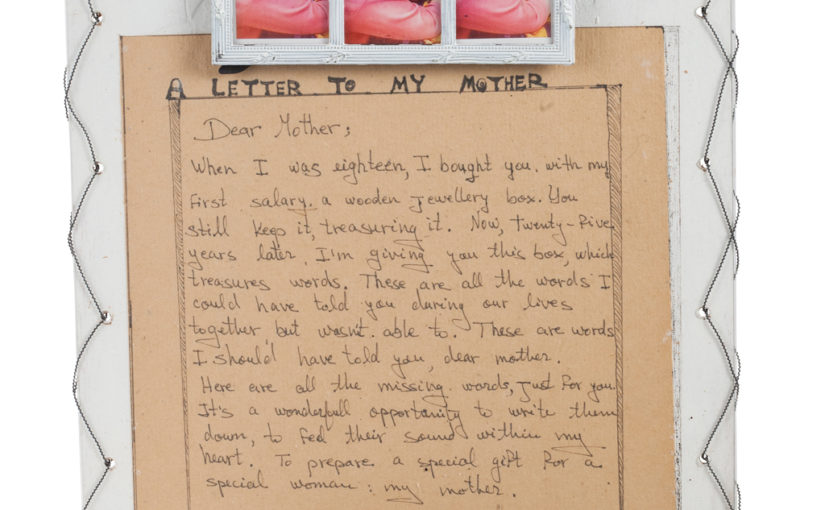 A LETTER TO MY MOTHER
Dear Mother;
When I was eighteen, I bought you. with my
first salary. a wooden jewellery box. You
still keep it, treasuring it. Now, twenty-five
years later, I'm giving you this box, which
treasures words. These are all the words I
could have told you during our lives
together but wasn't. able to. These are words
I should have told you, dear mother.
Here are all the missing words, just for you.
It's a wonderfull opportunity to write them
down, to feel their sound within my
heart. To prepare a special gift for a
special woman: my mother.